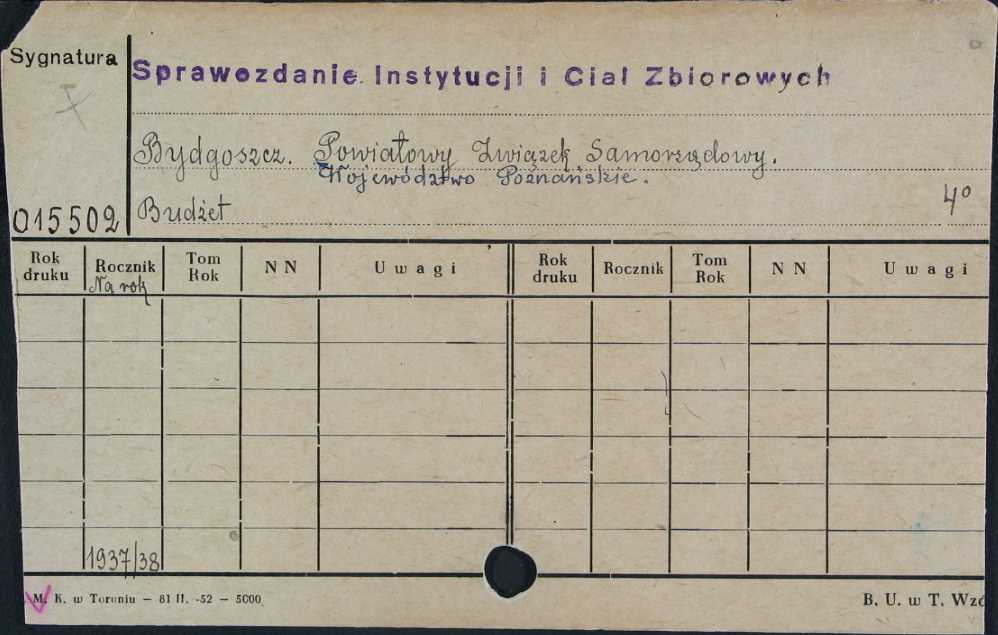 Sygnatura
X
Sprawozdanie Instytucji i Ciał Zbiorowych
Bydgoszcz. Powiatowy Związek Samorządowy.
Województwo Poznańskie.
015502 Budżet 4º
Rok druku Rocznik Tom Rok N N Uwagi Rok druku Rocznik Tom Rok N N Uwagi
Na rok
1937/38
M. K. w Toruniu – 81 II. -52 – 5000 B. U. w T. Wzó